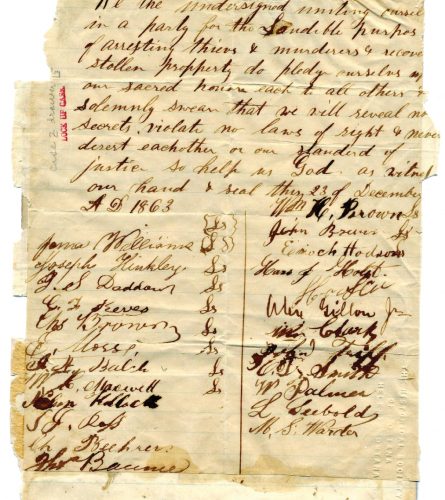 We the undersigned uniting oursel
in a party for the Laudible purpos
of arresting thieves & murderers & recover
stolen property do pledge ourselves up
our sacred honor each to all others &
solemnly swear that we will reveal no
secrets, violate no laws of right & never
desert eachother or our standerd of
justice so help us God. as witness
our hand & seal this 23 of December
A D 1863
James Williams Ls
Joseph Hinkley Ls
J. S. Daddow Ls
C. F. Keeves Ls
Chs Brown Ls
E Morse Ls
Balch Ls
W. C. Maxwell Ls
Nelson Kellock
S. J. Ross
Ch. Beehrer
Thos Baume
Wm H. Brown Ls
John Brown Ls
Enoch Hodson
Hans J Holst
Wm Clark
John Triff
Smith
Palmer
L Seebold
M. S. Warder
case 2 drawer
LOCK UP CASE